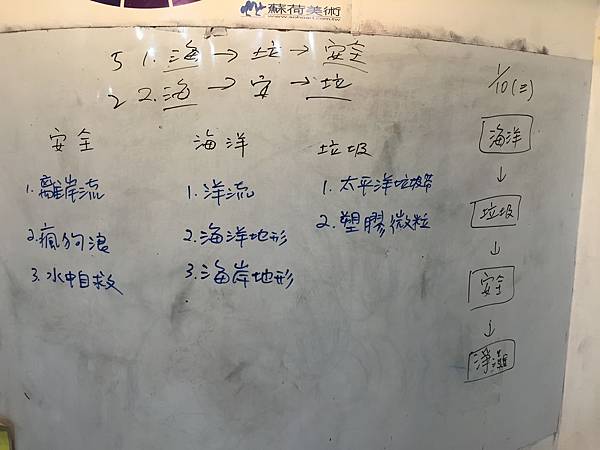 蘇荷美術
5 1. 海 → 垃 → 安全
2 2. 海 → 安 → 垃
安全
1. 離岸流
2. 瘋狗浪
3. 水中自救
海洋
1. 洋流
2. 海洋地形
3. 海岸地形
垃圾
1. 太平洋垃圾帶
2. 塑膠微粒
1/10(三)
海洋
↓
垃圾
↓
安全
↓
淨灘